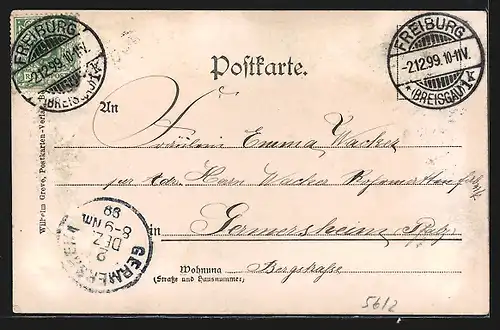 FREIBURG
-2.12.99.10-11V.
(BREISGAU) 1k
FREIBURG
-2.12.99.10-11V.
(BREISGAU) 1k
Postkarte.
An
Fräulein Emma Wacker
per Adr. Herrn Wacker
in Germersheim Pfalz
Wohnung Bergstraße
(Straße und Hausnummer)
Wilhelm Greve, Postkarten-Verlag
GERMERSHEIM
2
DEZ
8-9 Nm
99
5612